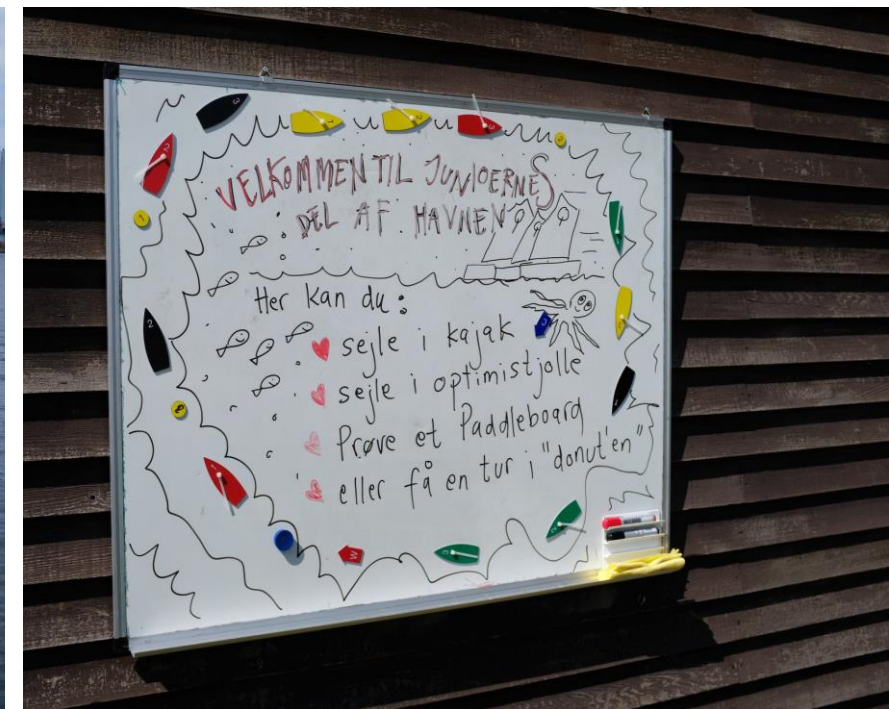 VELKOMMEN TIL JUNIOERNES
DEL AF HAVNEN
Her kan du:
sejle i kajak
sejle i optimistjolle
Prøve et Paddleboard
eller få en tur i "donut'en"